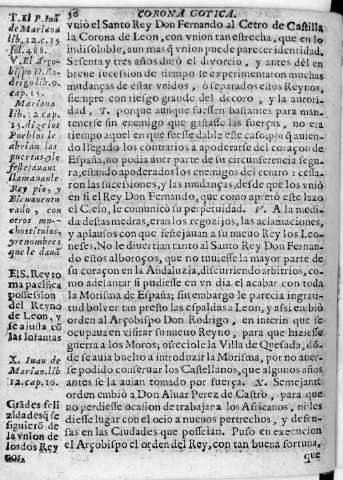 50 CORONA GOTICA.
vniò el Santo Rey Don Fernando al Cetro de Castilla
la Corona de Leon, con vnion tan estrecha, que en lo
indissoluble, aun mas q̃ vnion puede parecer identidad.
Sesenta y tres años durò el divorcio, y antes dèl en
breve sucession de tiempo se experimentaron muchas
mudanças de estar vnidos, ò separados estos Reynos,
siempre con riesgo grande del decoro, y la autori-
dad, T. porque aunque fuessen bastantes para man-
tenerse sin enemigo que gastasse las fuerças, no era
tiempo aquel en que fuesse dable este caso, porq̃ auien-
do llegado los contrarios à apoderarse del coraçon de
España, no podia auer parte de su circunferencia segu-
ra, estando apoderados los enemigos del centro: cessa-
ron las sucessiones, y las mudanças, desde que los vniò
en si el Rey Don Fernando, que como apretò este lazo
el Cielo, le comunicò su perpetuidad. V. A la medi-
da destas medras, eran los regozijos, las aclamaciones,
y aplausos con que festejauan à su nueuo Rey los Leo-
neses. No le diuertian tanto al Santo Rey Don Fernan-
do estos alboroços, que no tuuiesse la mayor parte de
su coraçon en la Andaluzia, discurriendo arbitrios, co-
mo adelantar si pudiesse en vn dia el acabar con toda
la Morisma de España; sin embargo le parecia ingrati-
tud bolver tan presto las espaldas à Leon, y assi embiò
orden al Arçobispo Don Rodrigo, en interin que se
ocupaua en visitar su nueuo Reyno, para que hiziesse
guerra a los Moros; ofreciole la Villa de Quesada, dõ-
de se auia buelto à introduzir la Morisma, por no auer-
se podido conseruar los Castellanos, que algunos años
antes se la auian tomado por fuerça. X. Semejante
orden embiò à Don Aluar Perez de Castro, para que
no perdiesse ocasion de trabajar a los Africanos, ni les
diesse lugar con el ocio a nueuos pertrechos, y defen-
sas en las Ciudades que posseian. Puso en execucion
el Arçobispo el orden del Rey, con tan buena fortuna,
que
T. El P. Iuã
de Mariana
lib. 12. c. 15
fol. 488.
V. El Arço-
bispo D. Ro-
drigo lib. 9.
cap. 15.
Mariana
lib. 12. cap.
15. dize los
Pueblos le
abrian las
puertas, y le
festejauan;
llamauanle
Rey pio, y
Bienauentu
rado, con
otros mu-
chos titulos,
y renombres
que le dauã
El S. Rey to
ma pacifica
possession
del Reyno
de Leon, y
se ajusta cõ
las Infantas
X. Iuan de
Marian. lib
12. cap. 10.
Grãdes feli
zidades q̃ se
siguierõ de
la vnion de
los dos Rey
nos.